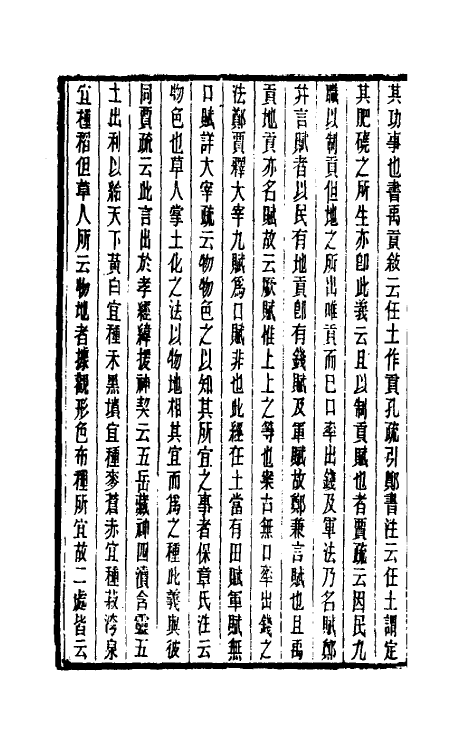 其功事也書禹貢敘云任土作貢孔疏引鄭書注云任土謂定
其肥磽之所生亦卽此義云且以制貢賦也者賈疏云因民九
職以制貢但地之所出唯貢而已口率出錢及軍法乃名賦鄭
幷言賦者以民有地貢卽有錢賦及軍賦故鄭兼言賦也且禹
貢地貢亦名賦故云厥賦惟上上之等也案古無口率出錢之
法鄭賈釋大宰九賦爲口賦非也此經任土當有田賦軍賦無
口賦詳大宰疏云物物色之以知其所宜之事者保章氏注云
物色也草人掌土化之法以物地相其宜而爲之種此義與彼
同賈疏云此言出於孝經緯援神契云五岳藏神四瀆含靈五
土出利以給天下黃白宜種禾黑墳宜種麥蒼赤宜種菽洿泉
宜種稻但草人所云物地者據觀形色布種所宜故二處皆云